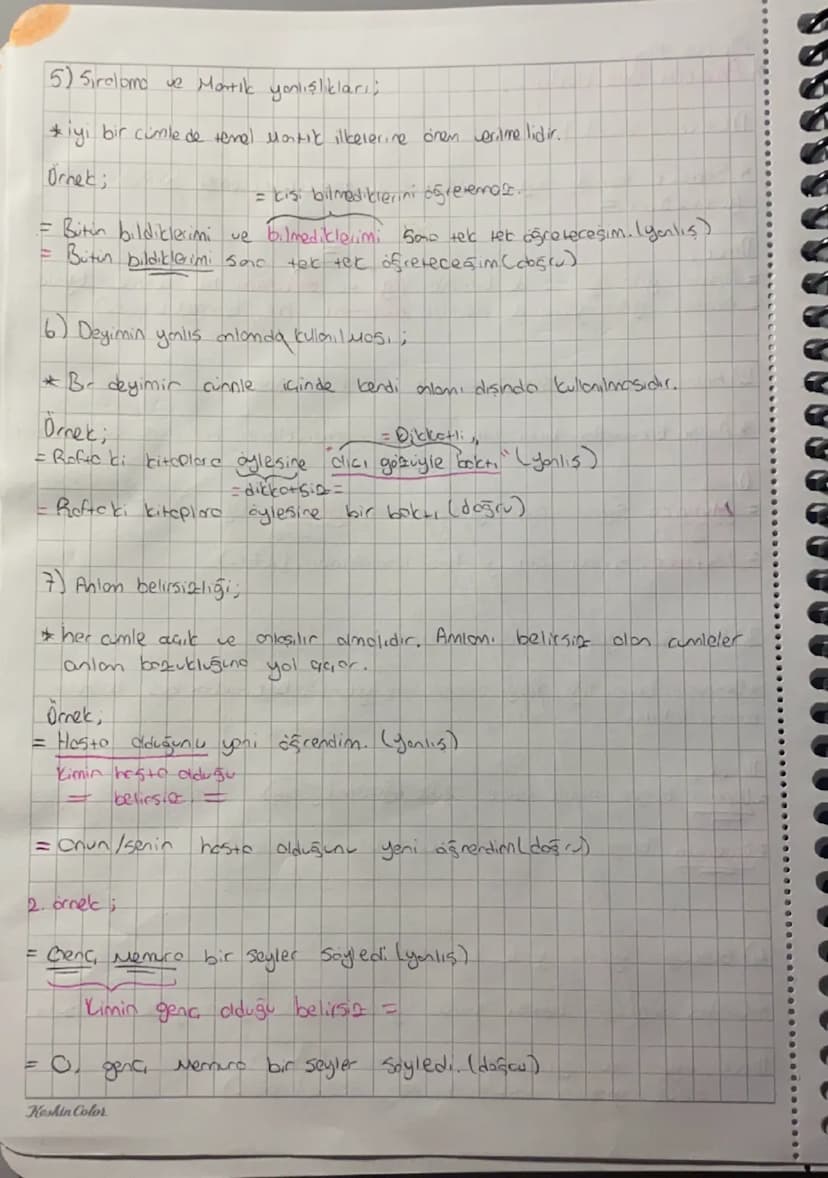 5) Sıralama ve Mantık yanlışlıkları;
* iyi bir cümlede temel mantık ilkelerine önem verilmelidir.
Örnek;
= kişi bilmediklerini öğretemez.
= Bütün bildiklerimi ve bilmediklerimi sana tek tek öğreteceğim. (yanlış)
= Bütün bildiklerimi sana tek tek öğreteceğim (doğru)
6) Deyimin yanlış anlamda kullanılması;
* Bir deyimin cümle içinde kendi anlamı dışında kullanılmasıdır.
Örnek;
= Dikkatli "
= Raftaki kitaplara öylesine "alıcı gözüyle baktı" (yanlış)
= dikkatsiz =
= Raftaki kitaplara öylesine bir baktı (doğru)
7) Anlam belirsizliği;
* her cümle açık ve anlaşılır olmalıdır. Anlamı belirsiz olan cümleler
anlam bozukluğuna yol açar.
Örnek;
= Hasta olduğunu yeni öğrendim. (yanlış)
Kimin hasta olduğu
= belirsiz =
= Onun/senin hasta olduğunu yeni öğrendim (doğru)
2. örnek;
= Genç memura bir şeyler söyledi (yanlış)
Kimin genç olduğu belirsiz =
= O, genç memura bir şeyler söyledi. (doğru)
Keskin Color